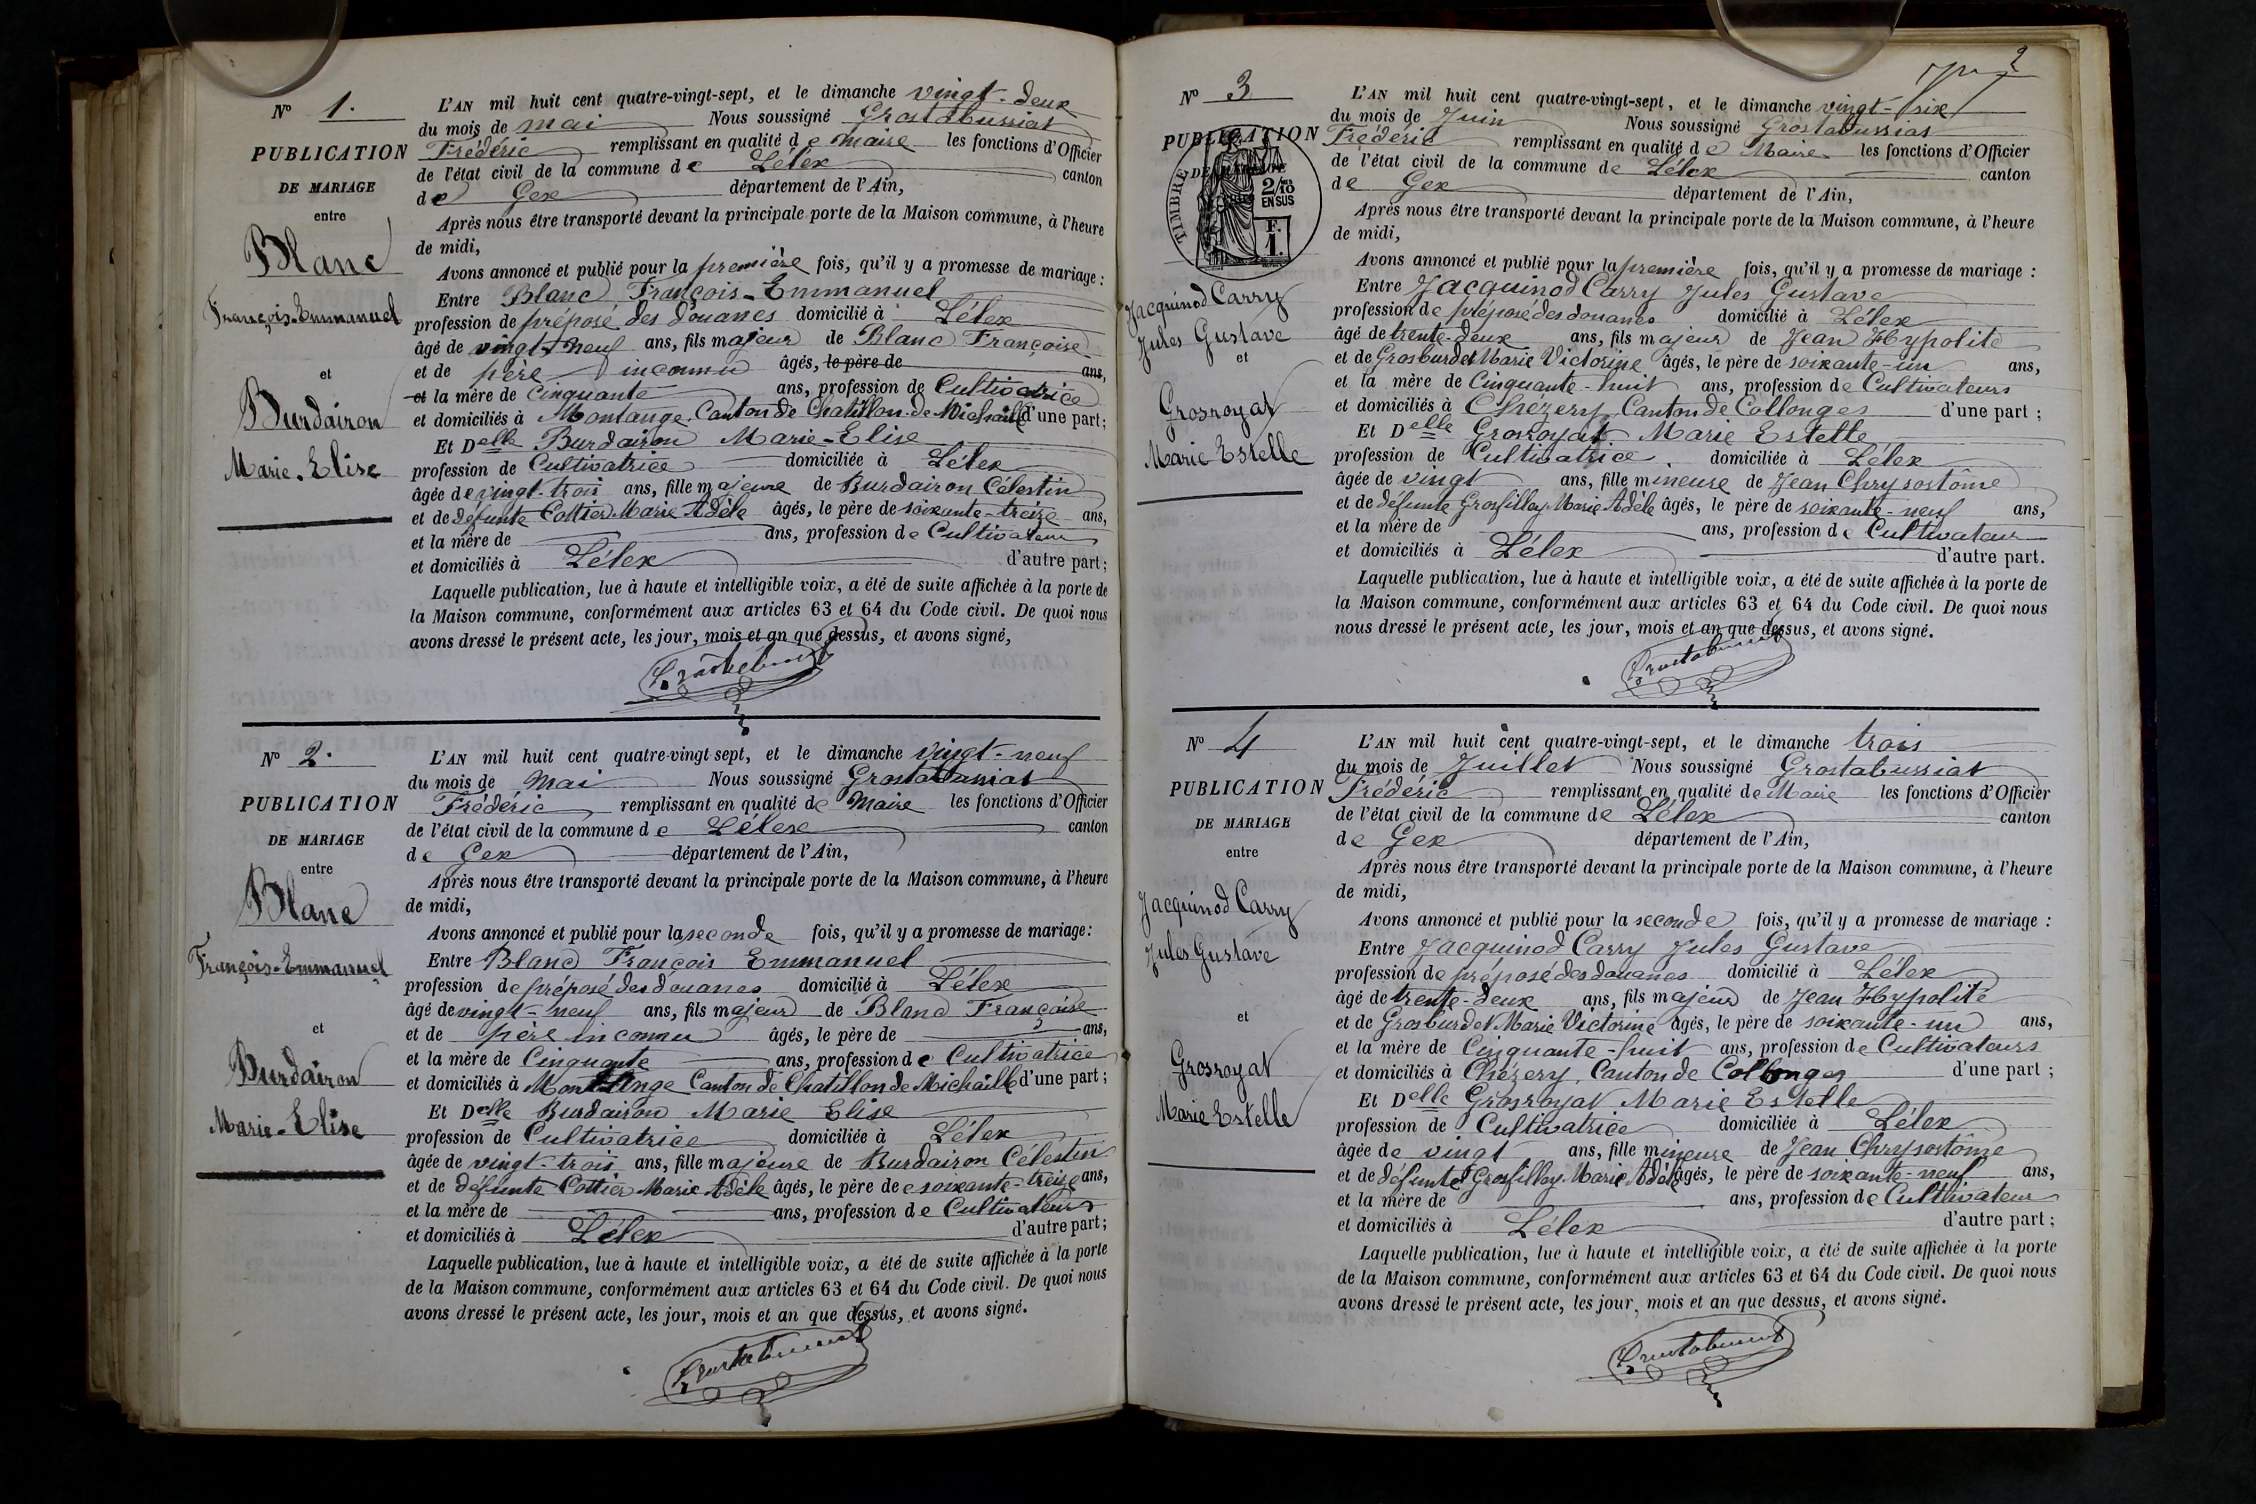 N° 1.
PUBLICATION
DE MARIAGE
entre
Blanc
François-Emmanuel
et
Burdairon
Marie-Elise
L'AN mil huit cent quatre-vingt-sept, et le dimanche vingt-deux
du mois de mai Nous soussigné Grostabussiat
Frédéric remplissant en qualité de maire les fonctions d'Officier
de l'état civil de la commune de Lélex canton
de Gex département de l'Ain,
Après nous être transporté devant la principale porte de la Maison commune, à l'heure
de midi,
Avons annoncé et publié pour la première fois, qu'il y a promesse de mariage :
Entre Blanc François-Emmanuel
profession de préposé des douanes domicilié à Lélex
âgé de vingt-neuf ans, fils majeur de Blanc Françoise
et de père inconnu âgés, le père de ans,
et la mère de cinquante ans, profession de Cultivatrice
et domiciliés à Montange. Canton de Chatillon-de-Michaille d'une part;
Et Delle Burdairon Marie-Elise
profession de Cultivatrice domiciliée à Lélex
âgée de vingt-trois ans, fille majeure de Burdairon Célestin
et de défunte Cottier Marie Adèle âgés, le père de soixante-treize ans,
et la mère de ans, profession de Cultivateur
et domiciliés à Lélex d'autre part;
Laquelle publication, lue à haute et intelligible voix, a été de suite affichée à la porte de
la Maison commune, conformément aux articles 63 et 64 du Code civil. De quoi nous
avons dressé le présent acte, les jour, mois et an que dessus, et avons signé,
Grostabussiat
N° 2.
PUBLICATION
DE MARIAGE
entre
Blanc
François-Emmanuel
et
Burdairon
Marie-Elise
L'AN mil huit cent quatre-vingt sept, et le dimanche vingt-neuf
du mois de Mai Nous soussigné Grostabussiat
Frédéric remplissant en qualité de Maire les fonctions d'Officier
de l'état civil de la commune de Lélex canton
de Gex département de l'Ain,
Après nous être transporté devant la principale porte de la Maison commune, à l'heure
de midi,
Avons annoncé et publié pour la seconde fois, qu'il y a promesse de mariage:
Entre Blanc François Emmanuel
profession de préposé des douanes domicilié à Lélex
âgé de vingt-neuf ans, fils majeur de Blanc Françoise
et de père inconnu âgés, le père de ans,
et la mère de Cinquante ans, profession de Cultivatrice
et domiciliés à Montange Canton de Chatillon de Michaille d'une part ;
Et Delle Burdairon Marie Elise
profession de Cultivatrice domiciliée à Lélex
âgée de vingt-trois ans, fille majeure de Burdairon Célestin
et de défunte Cottier Marie Adèle âgés, le père de soixante-treize ans,
et la mère de ans, profession de Cultivateurs
et domiciliés à Lélex d'autre part;
Laquelle publication, lue à haute et intelligible voix, a été de suite affichée à la porte
de la Maison commune, conformément aux articles 63 et 64 du Code civil. De quoi nous
avons dressé le présent acte, les jour, mois et an que dessus, et avons signé.
Grostabussiat
2
N° 3
PUBLICATION
DE MARIAGE
TIMBRE
2/10
EN SUS
F.
1.
Jacquinod Carry
Jules Gustave
et
Grosroyat
Marie Estelle
L'AN mil huit cent quatre-vingt-sept, et le dimanche vingt-six
du mois de Juin Nous soussigné Grostabussiat
Frédéric remplissant en qualité de Maire les fonctions d'Officier
de l'état civil de la commune de Lélex canton
de Gex département de l'Ain,
Après nous être transporté devant la principale porte de la Maison commune, à l'heure
de midi,
Avons annoncé et publié pour la première fois, qu'il y a promesse de mariage :
Entre Jacquinod Carry Jules Gustave
profession de préposé des douanes domicilié à Lélex
âgé de trente-deux ans, fils majeur de Jean Hypolite
et de Grosburdet Marie Victorine âgés, le père de soixante-un ans,
et la mère de Cinquante-huit ans, profession de Cultivateurs
et domiciliés à Chézery Canton de Collonges d'une part ;
Et Delle Grosroyat Marie Estelle
profession de Cultivatrice. domiciliée à Lélex
âgée de vingt ans, fille mineure de Jean Chrysostôme
et de défunte Grosfilley Marie Adèle âgés, le père de soixante-neuf ans,
et la mère de ans, profession de Cultivateur
et domiciliés à Lélex d'autre part.
Laquelle publication, lue à haute et intelligible voix, a été de suite affichée à la porte de
la Maison commune, conformément aux articles 63 et 64 du Code civil. De quoi nous
nous dressé le présent acte, les jour, mois et an que dessus, et avons signé.
Grostabussiat
N° 4
PUBLICATION
DE MARIAGE
entre
Jacquinod Carry
Jules Gustave
et
Grosroyat
Marie Estelle
L'AN mil huit cent quatre-vingt-sept, et le dimanche trois
du mois de Juillet Nous soussigné Grostabussiat
Frédéric remplissant en qualité de Maire les fonctions d'Officier
de l'état civil de la commune de Lélex canton
de Gex département de l'Ain,
Après nous être transporté devant la principale porte de la Maison commune, à l'heure
de midi,
Avons annoncé et publié pour la seconde fois, qu'il y a promesse de mariage :
Entre Jacquinod Carry Jules Gustave
profession de préposé des douanes domicilié à Lélex
âgé de trente-deux ans, fils majeur de Jean Hypolite
et de Grosburdet Marie Victorine âgés, le père de soixante-un ans,
et la mère de Cinquante-huit ans, profession de Cultivateurs
et domiciliés à Chézery. Canton de Collonges d'une part ;
Et Delle Grosroyat Marie Estelle
profession de Cultivatrice domiciliée à Lélex
âgée de vingt ans, fille mineure de Jean Chrysostôme
et de défunte Grosfilley Marie Adèle âgés, le père de soixante-neuf ans,
et la mère de ans, profession de Cultivateur
et domiciliés à Lélex d'autre part ;
Laquelle publication, lue à haute et intelligible voix, a été de suite affichée à la porte
de la Maison commune, conformément aux articles 63 et 64 du Code civil. De quoi nous
avons dressé le présent acte, les jour, mois et an que dessus, et avons signé.
Grostabussiat